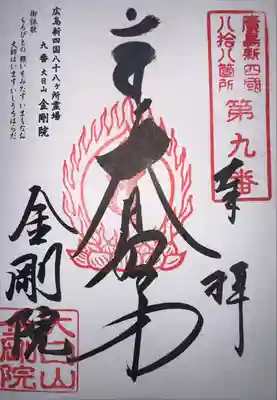 廣島新四國
八拾八箇所
第九番
奉拝
広島新四国八十八ヶ所霊場
九番 大日山 金剛院
御詠歌
もろびとの 願いをみたす いまもなお
大師はいます いしうちはらだ
金剛院
大日山
金剛院